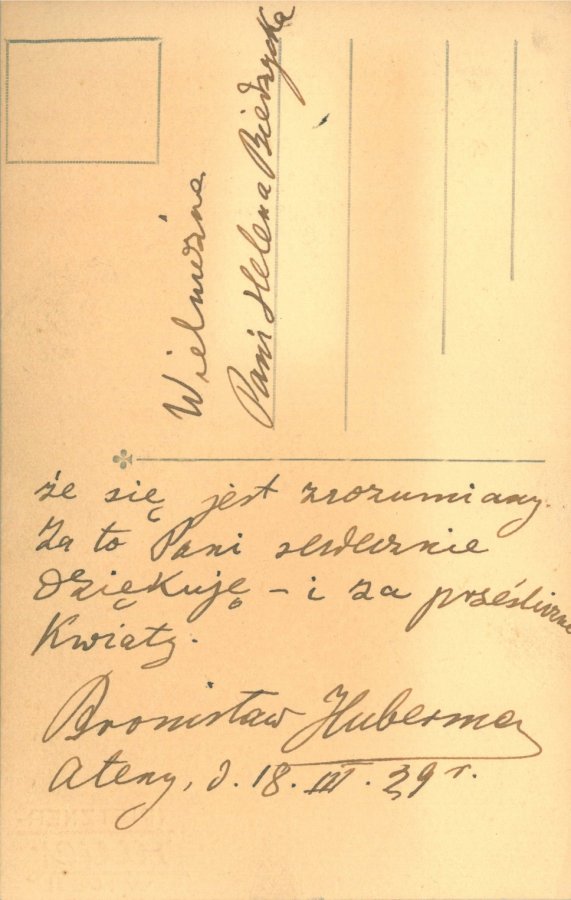 Wielmożna
Pani Helena Biedrzycka
że się jest zrozumiany.
Za to Pani serdecznie
dziękuję – i za prześliczne
kwiaty.
Bronisław Huberman
Ateny, d. 18. III. 29 r.